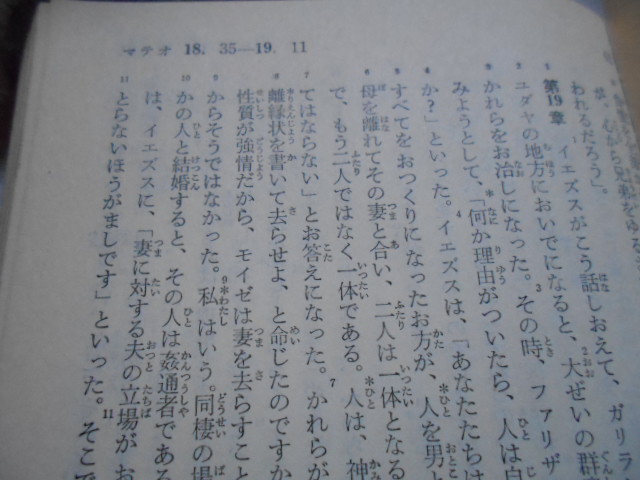 マテオ 18. 35—19. 11
が、心から兄弟をゆる
われるだろう」。
第19章 イエズスがこう話しおえて、ガリラ
ユダヤの地方においでになると、大ぜいの群
かれらをお治しになった。その時、ファリザ
みようとして、「何か理由がついたら、人は自
か?」といった。イエズスは、「あなたたちは
すべてをおつくりになったお方が、人を男と
母を離れてその妻と合い、二人は一体となる
で、もう二人ではなく一体である。人は、神
てはならない」とお答えになった。かれらが
離縁状を書いて去らせよ、と命じたのですか
性質が強情だから、モイゼは妻を去らすこと
からそうではなかった。私はいう。同棲の場
かの人と結婚すると、その人は姦通者である
は、イエズスに、「妻に対する夫の立場がお
とらないほうがましです」といった。そこで